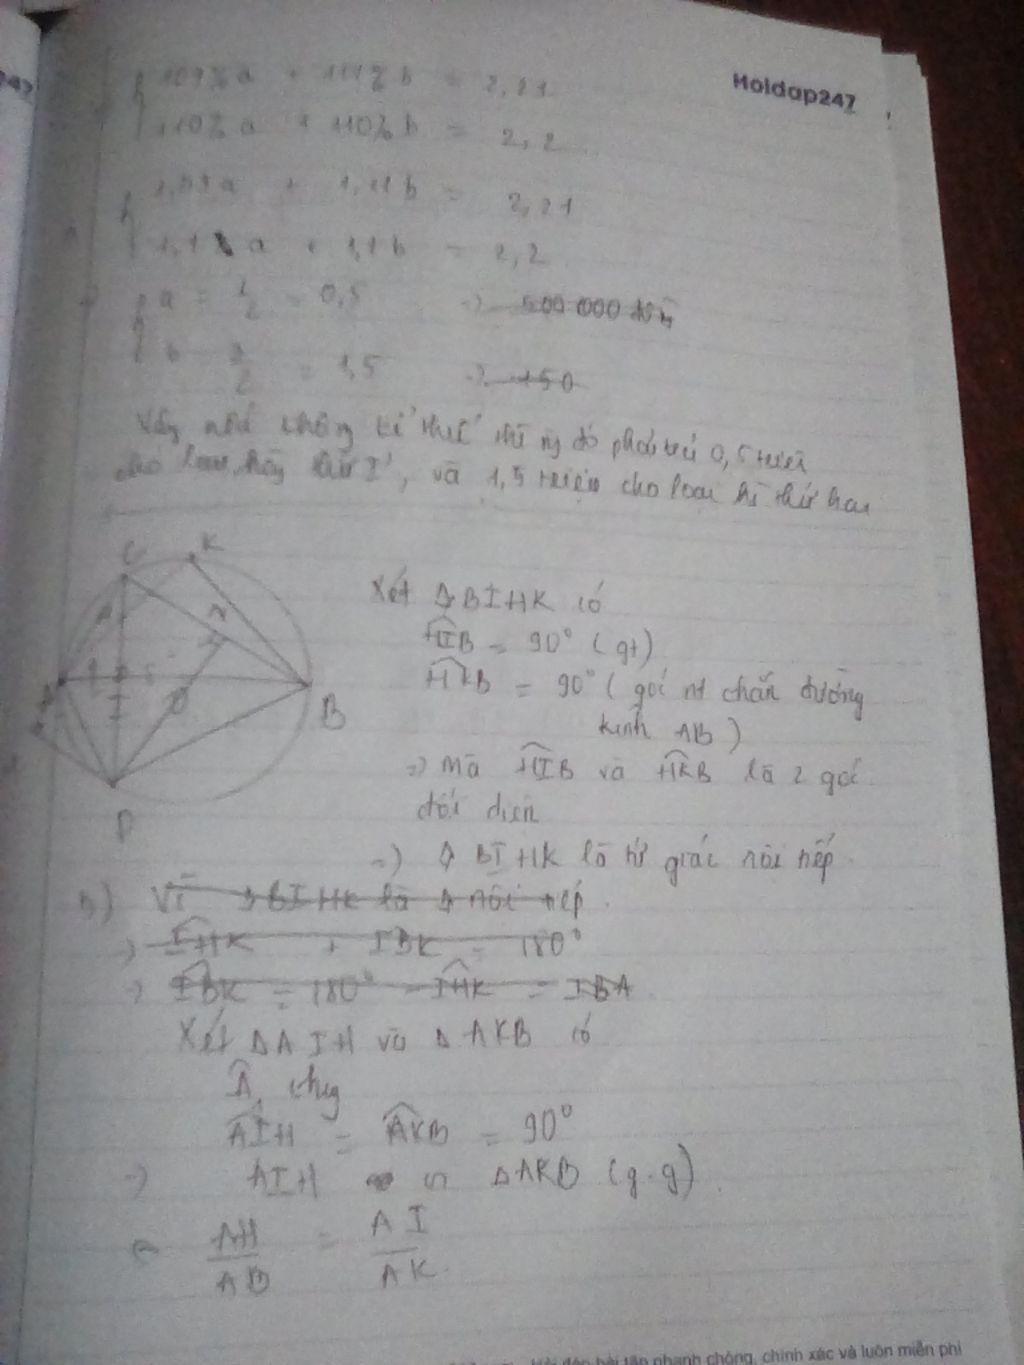 Hoidap247
109% a + 111% b = 2,21
110% a + 110% b = 2,2
1,09 a + 1,11 b = 2,21
1,1 a + 1,1 b = 2,2
=> a = 1/2 = 0,5 => 500 000 đồng
b = 3/2 = 1,5 => 150
Vậy nếu không kể thuế thì ng đó phải trả 0,5 triệu
cho loại hàng thứ I, và 1,5 triệu cho loại h thứ hai
C K
N
I O
B
D
Xét ◊ BIHK có
HIB = 90° (gt)
HKB = 90° (góc nt chắn đường
kính AB)
=> Mà HIB và HKB là 2 góc
đối diện
=> ◊ BIHK là tứ giác nội tiếp.
b) Vì ◊ BIHK là ◊ nội tiếp.
=> IHK + IBK = 180°
=> IBK = 180° - IHK = IBA
Xét Δ AIH và Δ AKB có
A₁ chung
AIH = AKB = 90°
=> AIH ∽ Δ AKB (g.g)
AH/AB = AI/AK
Hỏi đáp bài tập nhanh chóng, chính xác và luôn miễn phí